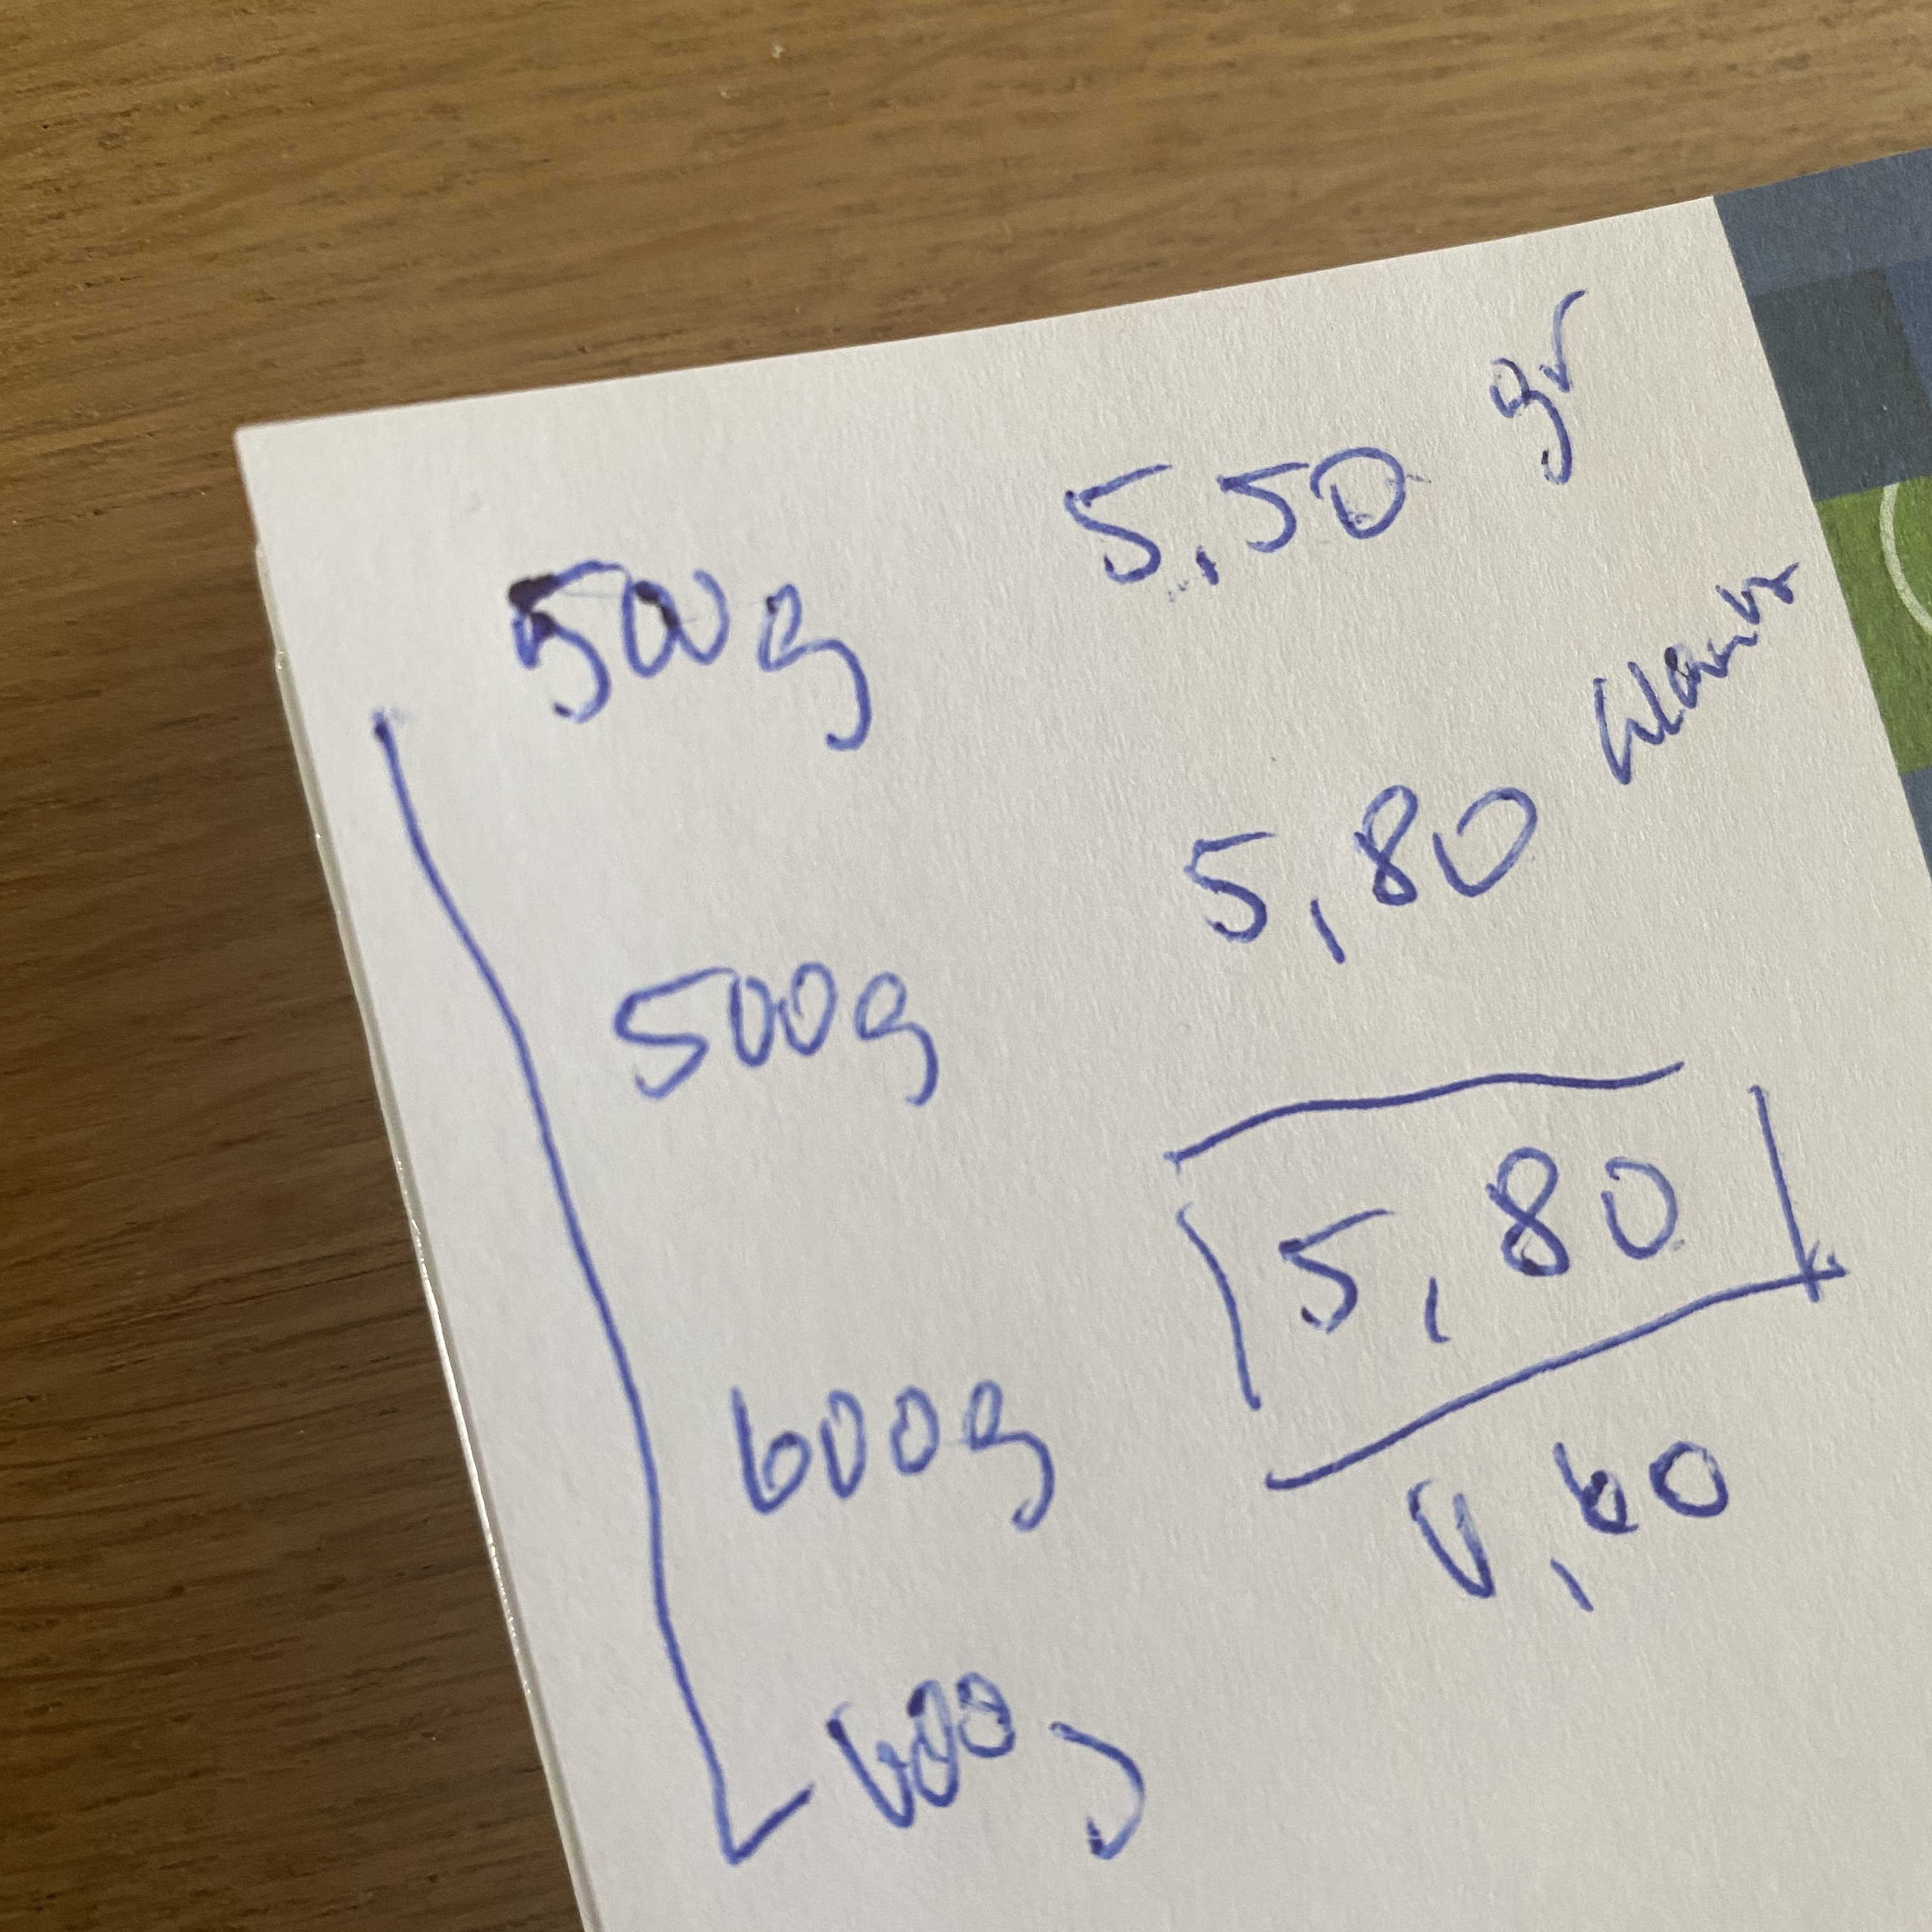 500g 5,50 gr
500g 5,80
600g 5,80
600g 0,60